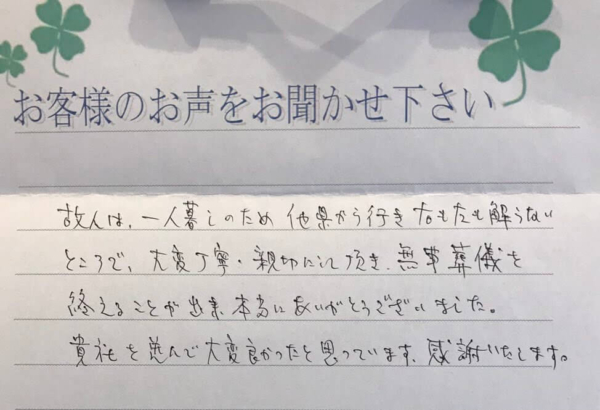 お客様のお声をお聞かせ下さい
故人は、一人暮しのため他県から行き右も左も解らない
ところで、大変丁寧・親切にして頂き、無事葬儀を
終えることが出来、本当にありがとうございました。
貴社を選んで大変良かったと思っています、感謝いたします。